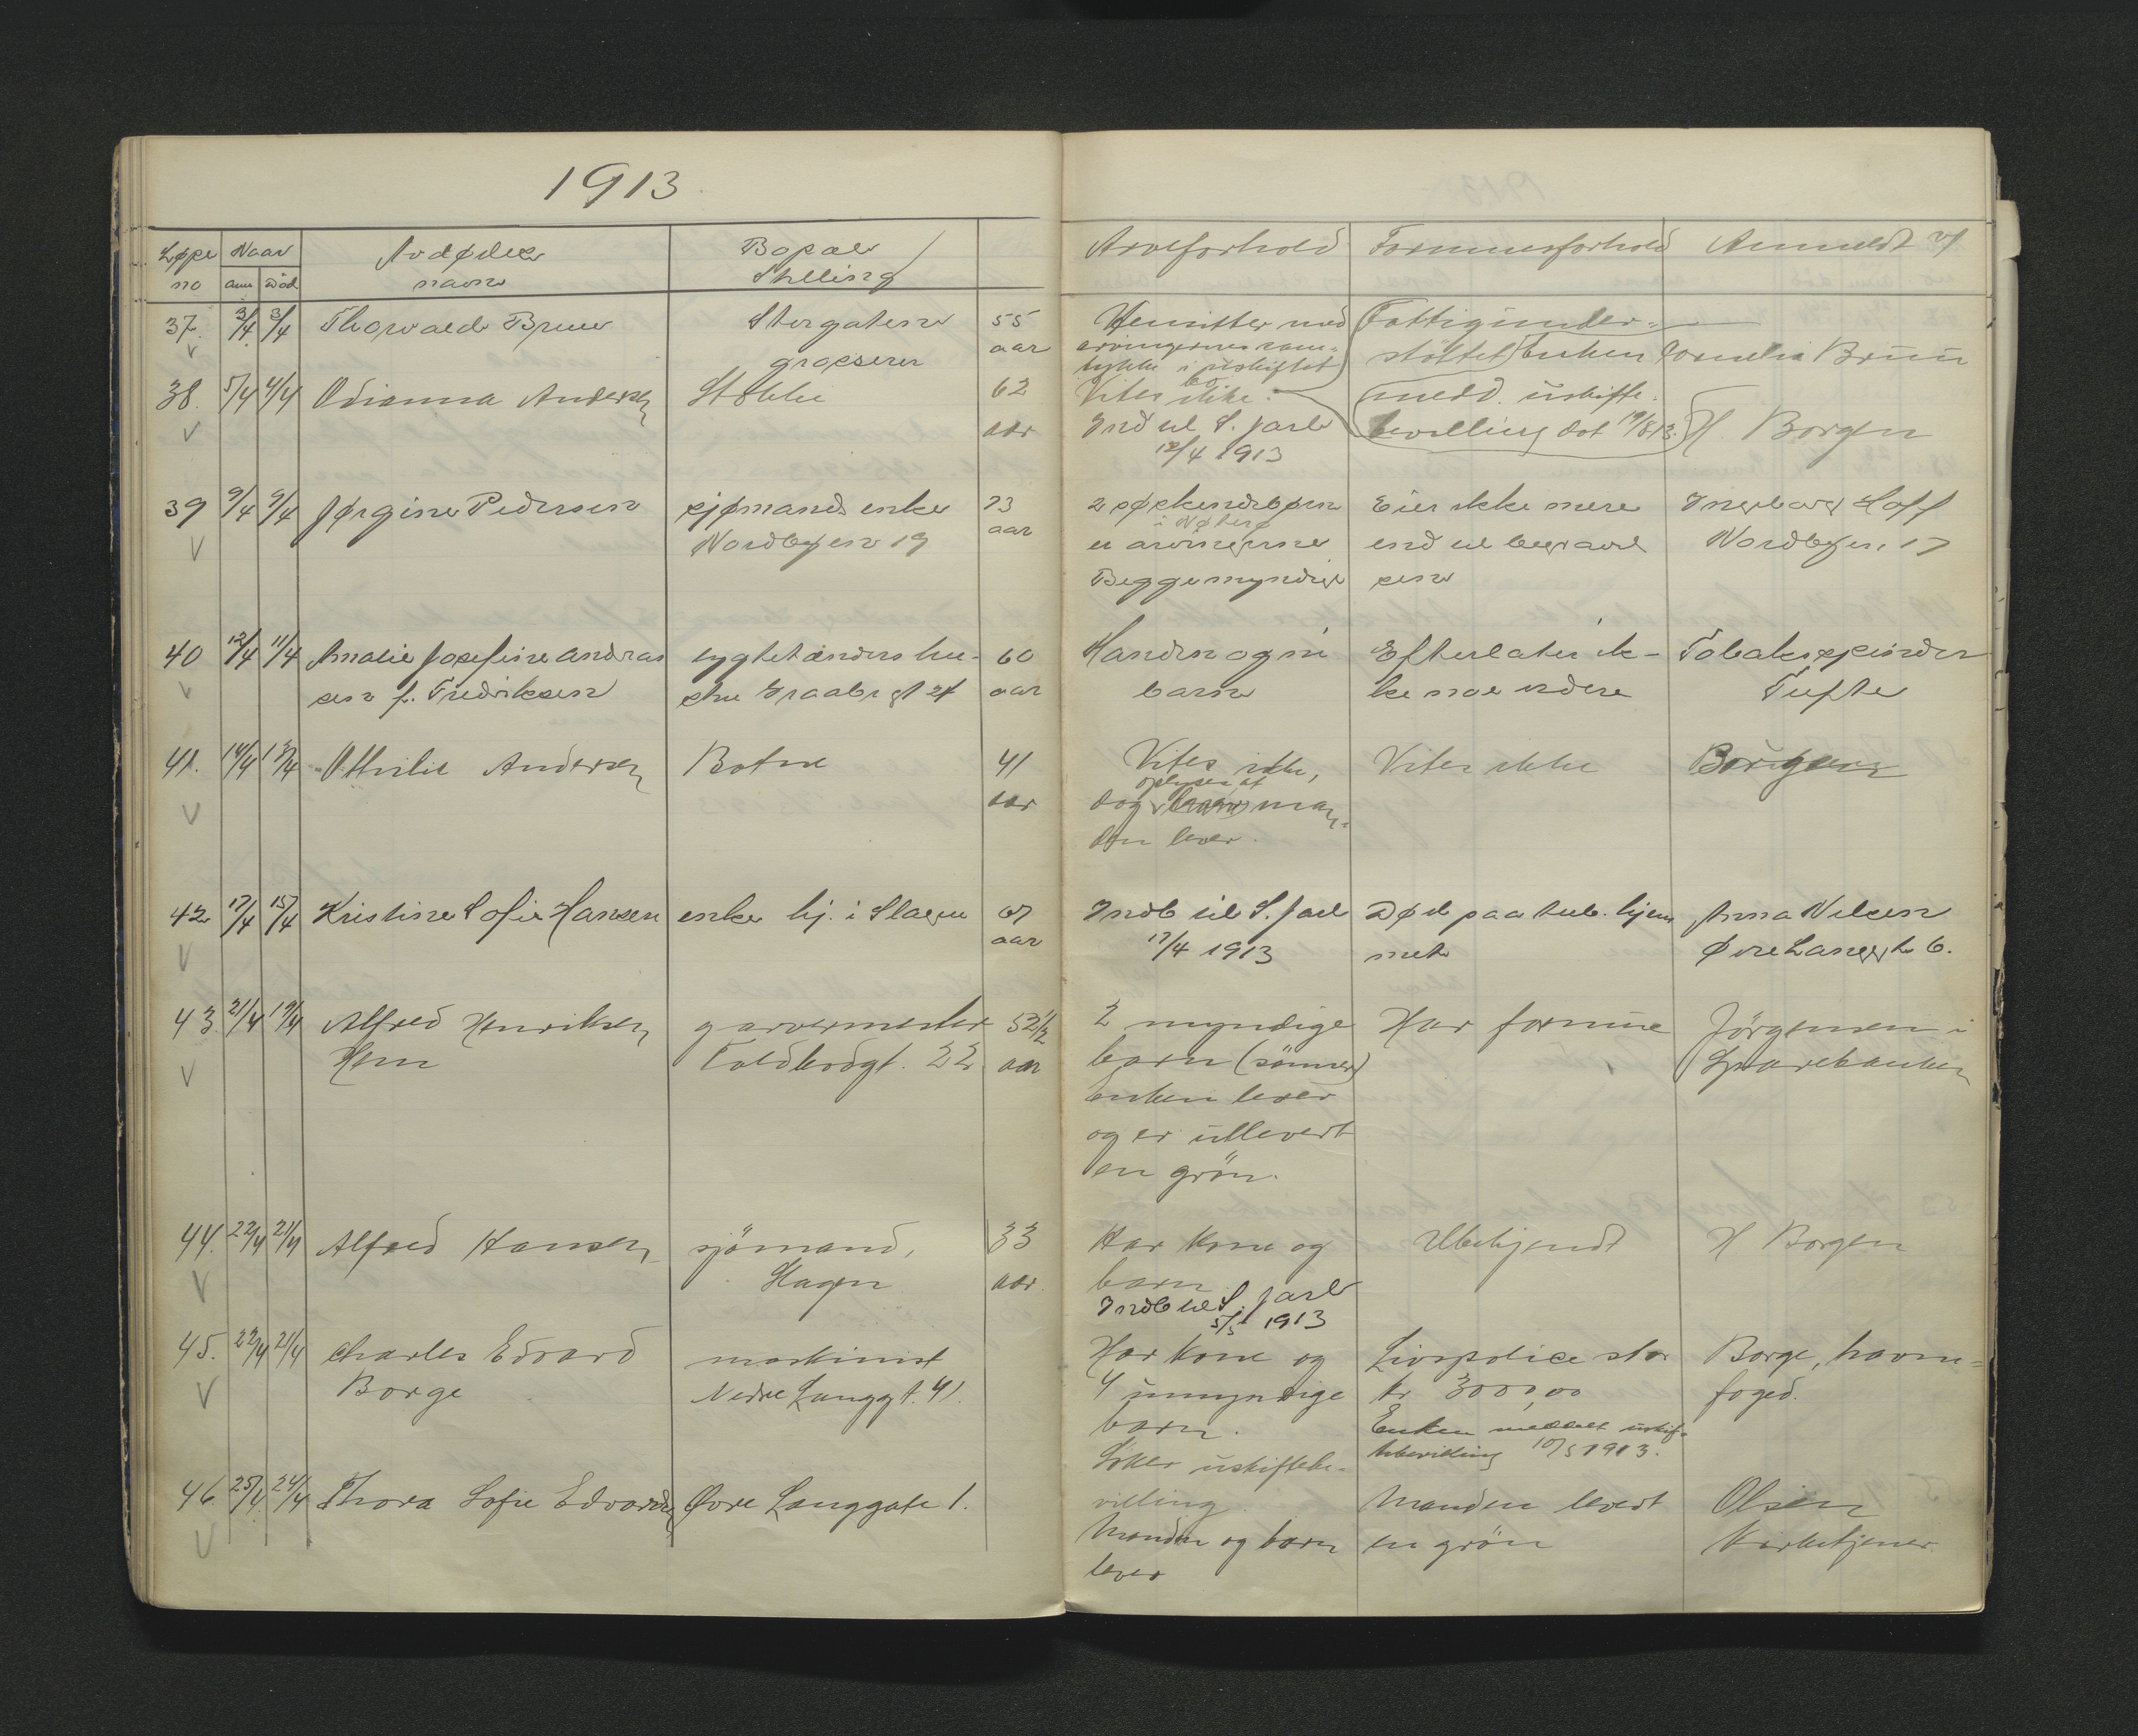 1913
Løpe no
Naar
anm død
Avdødes navn
Bopæl / Stilling
Arveforhold
Formuesforhold
Anmeldt af
37. 3/4 3/4 Thorvald Bruu
Storgaten
grosserer
55 aar
Hensitter med
arvingernes sam-
tykke i uskiftet
bo
Fattigunder-
støttet Enken
medd. uskifte-
bevilling dat 19/8 13.
Cornelia Bruu
38. 5/4 4/4 Odianna Andersen
Stokke
62 aar
Vites ikke.
Indb til S. Jarl
12/4 1913
H. Borgen
39 9/4 9/4 Jørgine Pedersen
sjømands enke
Nordbyen 19
73 aar
2 søskendebørn
i Nøterø
er arvingerne
Begge myndige
Eier ikke mere
end til begravel
sen
Ingeborg Hoff
Nordbyen 17
40 12/4 11/4 Amalie Josefine Andreas
sen f. Fredriksen
lygtetænders hu-
stru Graabrgt 24
60 aar
Manden og
barn
Efterlater ik-
ke noe videre
Tobakspinder
Tufte
41. 14/4 13/4 Ottilie Andersen
Botne
41 aar
Vites ikke,
oplyses at
dog man-
den lever.
Vites ikke
Borgen
42 17/4 15/4 Kristine Sofie Hansen
enke hj. i Slagen
67 aar
Indb til S. Jarl
17/4 1913
Død paa tub. hjem
met
Anna Nilsen
Øvre Langgt 6.
43. 21/4 19/4 Alfred Henriksen
Hem
garvermester
Toldbodgt. 22
52 1/2 aar
2 myndige
barn (sønner)
Enken lever
og er utlevert
en grøn.
Har formue
Jörgensen i
Sparebanken
44. 22/4 21/4 Alfred Hansen
sjömand,
Slagen
33 aar
Har kone og
barn
Indb til S. Jarl
5/5 1913
Ubekjendt
H Borgen
45. 22/4 21/4 Charles Edvard
Borge
maskinist
Nedre Langgt. 41.
Har kone og
4 umyndige
barn.
Söker uskiftebe-
villing.
Livspolice stor
kr 3000,00
Enken meddelt uskif-
tebevilling 10/5 1913.
Borge, havne-
foged.
46. 25/4 24/4 Thora Sofie Edvardsen
Øvre Langgate 1.
Manden og barn
lever
Manden levert
en grön
Olsen
Kirketjener.